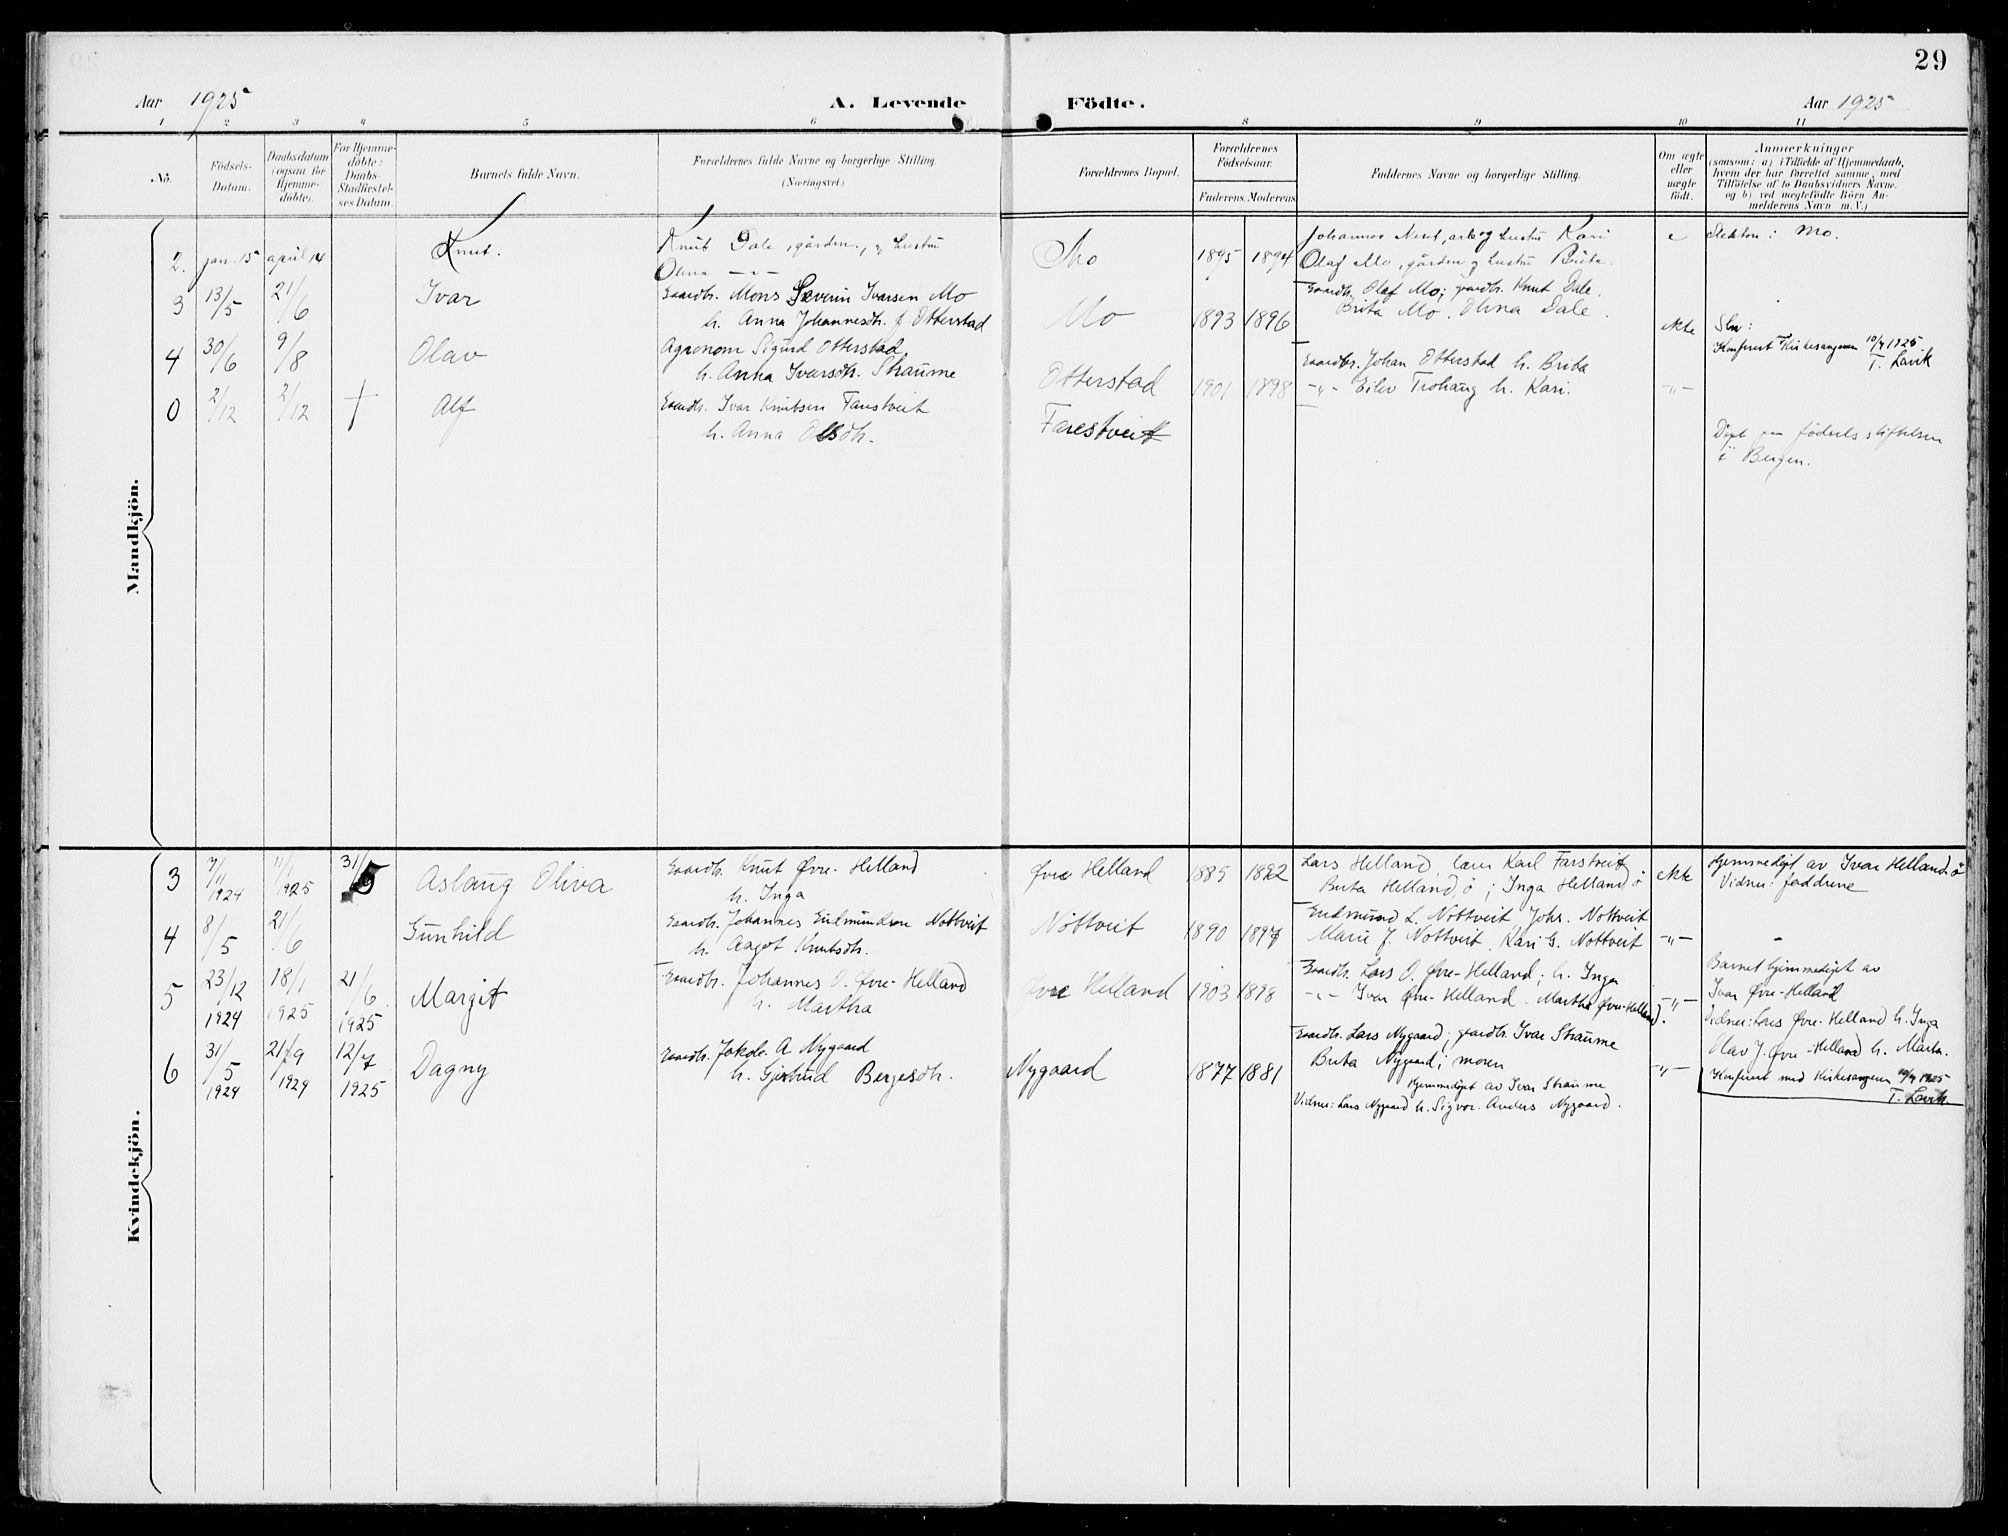 29
Aar 1925
A. Levende Födte.
Aar 1925
1 2 3 4 5 6 8 9 10 11
No.
Födsels-Datum.
Daabsdatum (ogsaa for Hjemme-döbte).
For Hjemme-döbte: Daabs-Stadfæstel-ses Datum.
Barnets fulde Navn.
Forældrenes fulde Navne og borgerlige Stilling. (Næringsvei.)
Forældrenes Bopæl.
Forældrenes Födselsaar.
Faderens. Moderens.
Faddernes Navne og borgerlige Stilling.
Om ægte eller uægte födt.
Anmærkninger
(saasom: a) i Tilfælde af Hjemmedaab,
hvem der har forrettet samme, med
Tilföielse af to Daabsvidners Navne.
og b) ved uægtefödte Börn An-
melderens Navn m. V.)
Mandkjön.
2. jan. 15 april 14 Knut. Knut Dale, gårdm., og hustru Mo 1895 1894 Johannes Neset, arb. og hustru Kari e Stekton: Mo.
Olina —"— Olaf Mo, gårdm. og hustru Brita.
3 13/5 21/6 Ivar Gaardbr. Mons Severin Ivarsen Mo Mo 1893 1896 Gaardbr. Olaf Mo; gaardbr. Knut Dale.
h. Anna Johannesdtr. f. Otterstad Brita Mo. Olina Dale. ekte
4 30/6 9/8 Olav Agronom Sigurd Otterstad Otterstad 1901 1898 Gaardbr. Johan Otterstad h. Brita
h. Anna Ivarsdtr. Straume —"— Eilev Trohaug h. Kari. —"—
Konferert Kirkesangeren 10/4 1925
T. Lavik
0 2/12 2/12 + Alf Gaardbr. Ivar Knutsen Farestveit Farestveit
h. Anna Olsdtr.
Döpt paa födselsstiftelsen
i Bergen.
Kvindekjön.
3 7/11 1924 11/1 1925 31/5 Aslaug Oliva Gaardbr. Knut Øvre-Helland Øvre Helland 1885 1892 Lars Helland, lærer Karl Farstveit ekte Hjemmedöpt av Ivar Helland ö
h. Inga Brita Helland ö; Inga Helland ö Vidner: fadderne
4 8/5 21/6 Gunhild Gaardbr. Johannes Eidmundsen Nottveit Nöttveit 1890 1897 Eidmund L. Nottveit Johs. Nottveit
h. Aagot Knutsdtr. Marie J. Nottveit, Kari G. Nottveit —"—
5 23/12 1924 18/1 1925 21/6 1925 Margit Gaardbr. Johannes O. Øvre-Helland Øvre Helland 1903 1898 Gaardbr. Lars O. Øvre-Helland; h. Inga
h. Martha —"— Ivar Øvre-Helland. Martha Øvre-Helland. —"—
Barnet hjemmedöpt av
Ivar Øvre-Helland
Vidner: Lars Øvre-Helland h. Inga
Olav J. Øvre-Helland h. Marta.
6 31/5 1924 21/9 1924 12/7 1925 Dagny Gaardbr. Jakob A Nygaard Nygaard 1877 1881 Gaardbr. Lars Nygaard; gaardbr. Ivar Straume
h. Gjertrud Bergesdtr. Brita Nygaard; moren —"—
Hjemmedöpt av Ivar Straume
Vidner: Lars Nygaard h. Sigvor. Anders Nygaard.
Konferert med Kirkesangeren 10/4 1925
T. Lavik